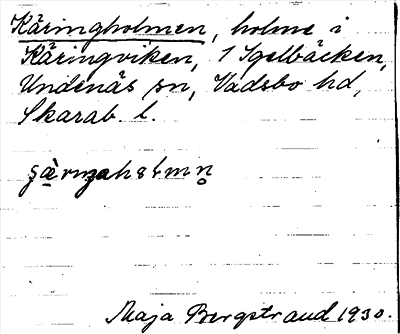 Käringholmen, holme i
Käringviken, / Igelbäcken,
Undenäs sn, Vadsbo hd,
Skarab. l.
Maja Bergstrand 1930.